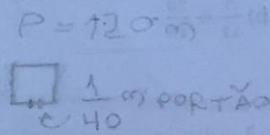 P = 120 m
1/40 m PORTÃO